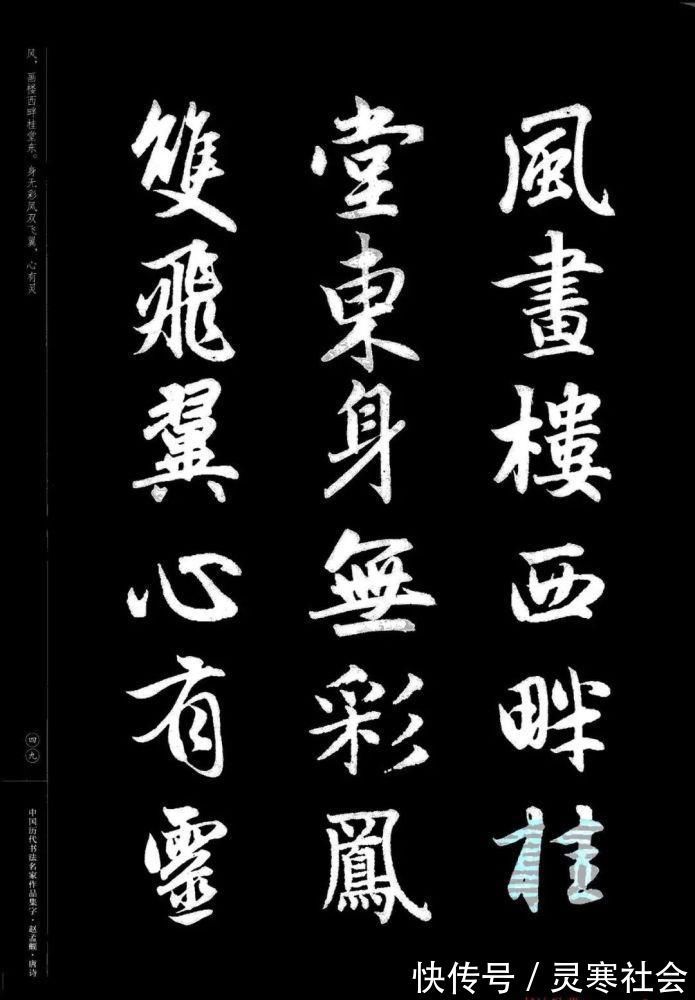 風畫樓西畔桂
堂東身無彩鳳
雙飛翼心有靈
风，画楼西畔桂堂东。身无彩凤双飞翼，心有灵
四九
中国历代书法名家作品集字·赵孟頫·唐诗
快传号／灵寒社会